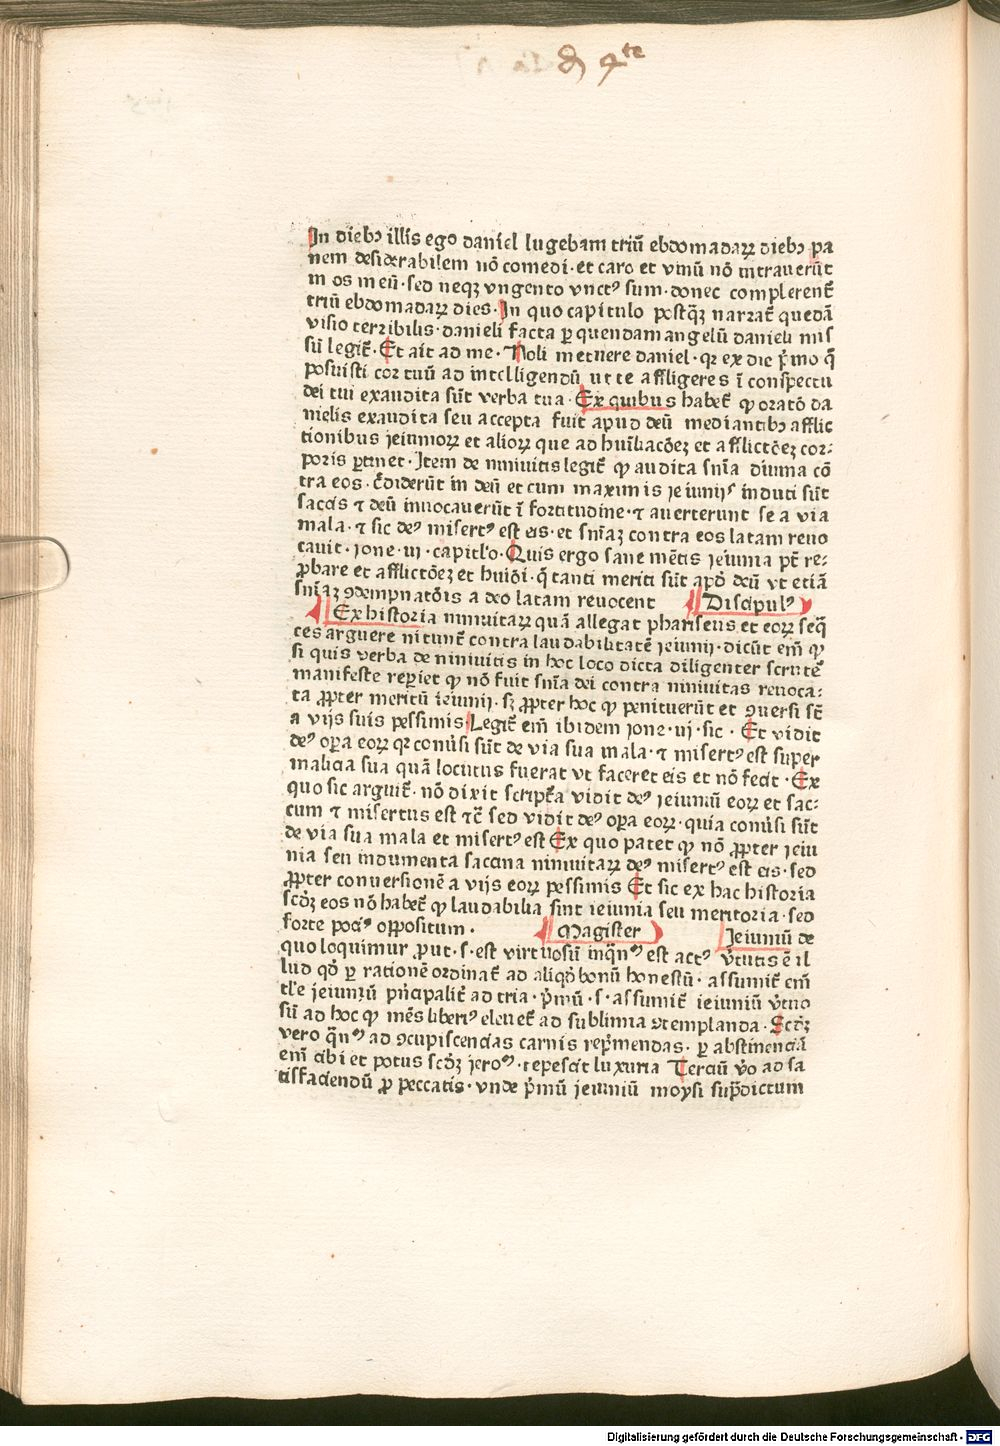 In diebꝰ illis ego daniel lugebam triū ebdomadaꝝ diebꝰ pa
nem desiderabilem nō comedi · et caro et vinū nō intrauerūt
in os meū · sed neqꝫ vngento vnctꝰ sum · donec complerent̄
triū ebdomadaꝝ dies · In quo capitulo postqꝫ narrat̄ quedā
visio terribilis · danieli facta ꝑ quendam angelū danieli mis
sū legit̄ · Et ait ad me · Noli metuere daniel · qꝛ ex die p̄mo q̄
posuisti cor tuū ad intelligendū ut te affligeres ī conspectu
dei tui exaudita sūt verba tua · Ex quibus habet̄ ꝙ oratō da
nielis exaudita seu accepta fuit apud deū mediantibꝰ afflic
tionibus jeiunioꝝ et alioꝝ que ad huīliacōeꝫ et afflictōeꝫ cor⸗
poris ꝑtinet · Item de niniuitis legit̄ ꝙ audita snīa diuina cō
tra eos · c̄diderūt in deū et cum maximis jeiunijˢ induti sūt
saccis ⁊ deū inuocauerūt ī fortitudine · ⁊ auerterunt se a via
mala · ⁊ sic deꝰ misertꝰ est eis · et snīaꝫ contra eos latam reuo
cauit · jone · iij · capitl̄o · Quis ergo sane mētis jeiunia pt̄ re⸗
ꝓbare et afflictōeꝫ et huiōi · q̄ tanti meriti sūt apd̄ deū vt etiā
snīaꝫ ꝯdempnatōis a deo latam reuocent Discipulꝰ
Ex historia niniuitaꝝ quā allegat phariseus et eoꝝ seq̄
ces arguere nitunt̄ contra laudabilitatē jeiunij · dicūt em̄ ꝙ
si quis verba de niniuitis in hoc loco dicta diligenter scrutet̄
manifeste reꝑiet ꝙ nō fuit snīa dei contra niniuitas reuoca⸗
ta ꝓpter meritū ieiunij · sꝫ ꝓpter hoc ꝙ penituerūt et ꝯuersi st̄
a vijs suis pessimis · Legit̄ em̄ ibidem jone · iij · sic · Et vidit
deꝰ oꝑa eoꝝ qꝛ conūsi sūt de via sua mala · ⁊ misertꝰ est super
malicia sua quā locutus fuerat vt faceret eis et nō fecit · Ex
quo sic arguit̄ · nō dixit scriptᷓa vidit deꝰ jeiuniū eoꝝ et sac⸗
cum ⁊ misertus est ⁊c̄ sed vidit deꝰ oꝑa eoꝝ · quia conūsi sūt
de via sua mala et misertꝰ est Ex quo patet ꝙ nō ꝓpter jeiu
nia seu indumenta saccina niniuitaꝝ deꝰ misertꝰ est eis · sed
ꝓpter conuersionē a vijs eoꝝ pessimis Et sic ex hac historia
scd̄ꝫ eos nō habet̄ ꝙ laudabilia sint ieiunia seu meritoria · sed
forte pociꝰ oppositum · Magister Ieiuniū de
quo loquimur ꝓut · s · est virtuosū inq̄nꝰ est actꝰ v̄tutis ē il
lud qd̄ ꝑ rationē ordinat̄ ad aliqd̄ bonū honestū · assumit̄ em̄
tl̄e jeiuniū pn̄cipalit̄ ad tria · p̄mū · s · assumit̄ ieiuniū v̄tuo
sū ad hoc ꝙ mēs liberiꝰ eleuet̄ ad sublimia ꝯtemplanda · Scd̄ꝫ
vero q̄nꝰ ad ꝯcupiscencias carnis rep̄mendas · ꝑ abstinenciā
em̄ cibi et potus scd̄ꝫ jeroꝰ · tepescit luxuria Terciū v̄o ad sa
tisfaciendū ꝓ peccatis · vnde p̄mū jeiuniū moysi sup̄dictum
Digitalisierung gefördert durch die Deutsche Forschungsgemeinschaft - DFG